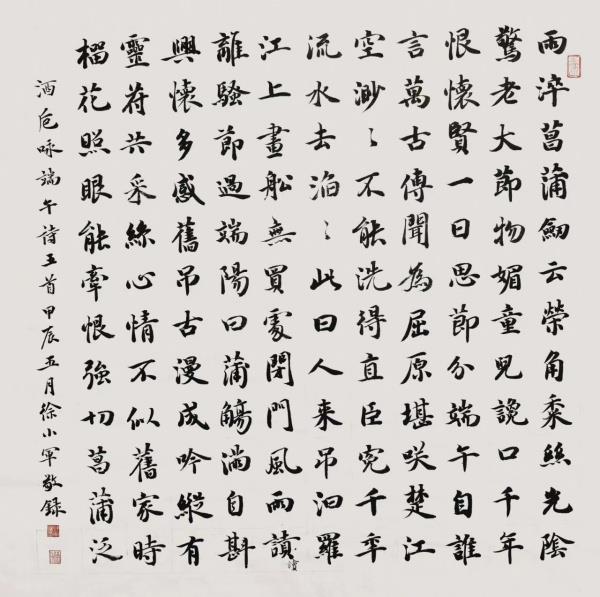 雨淬菖蒲劒云榮角黍絲光陰
驚老大節物媚童兒讒口千年
恨懷賢一日思節分端午自誰
言萬古傳聞為屈原堪咲楚江
空渺〻不能洗得直臣寃千年
流水去滔〻此日人來吊汨羅
江上畫船無買處閉門風雨讀
讀
離騷節過端陽日蒲觴滿自斟
興懷多感舊吊古漫成吟縱有
靈符共采絲心情不似舊家時
榴花照眼能牽恨強切菖蒲泛
酒卮咏端午詩五首甲辰五月徐小軍敬録